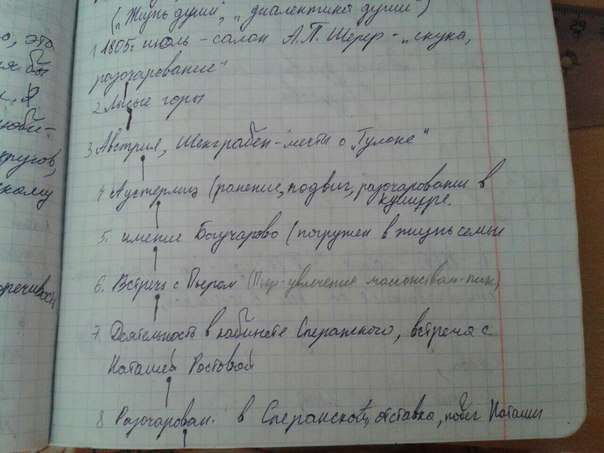 ("Жизнь души", "диалектика души")
1. 1805г. июль - салон А.П. Шерер - "скука,
разочарование"
2. Лысые горы
3. Австрия, Шенграбен - мечты о "Тулоне"
4. Аустерлиц (ранение, подвиг, разочарование в
кумире.
5. имение Богучарово (погружен в жизнь семьи
6. Встреча с Пьером (Пьер - увлечение масонством
7. Деятельность в кабинете Сперанского, встреча с
Наташей Ростовой
8. Разочарован. в Сперанском, отставка, побег Наташи